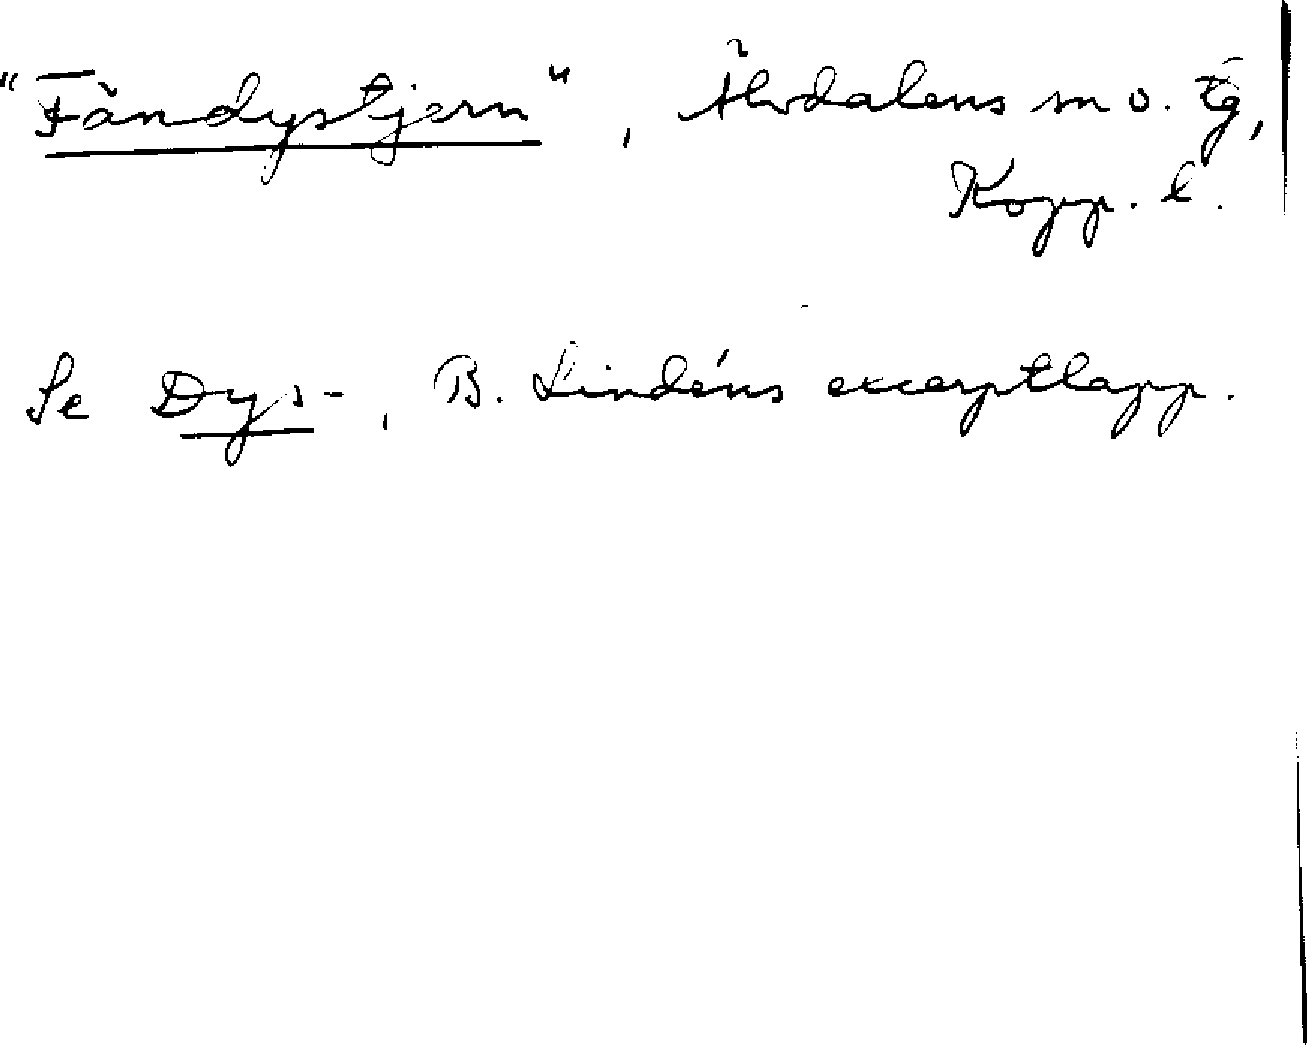 "Fåndystjern", Älvdalens sn o. tg,
Kopp. l.
Se Dys-, B. Lindéns excerptlapp.